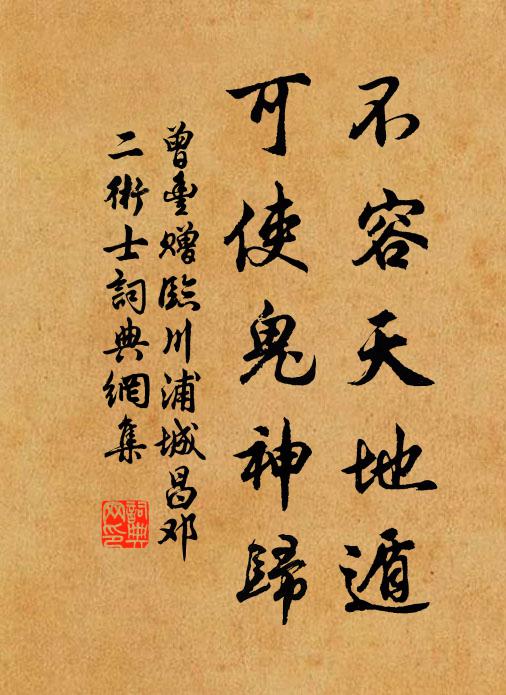 不容天地遁
可使鬼神歸
曾豊贈臨川浦城昌邓
二術士詞典網集
詞典
网印